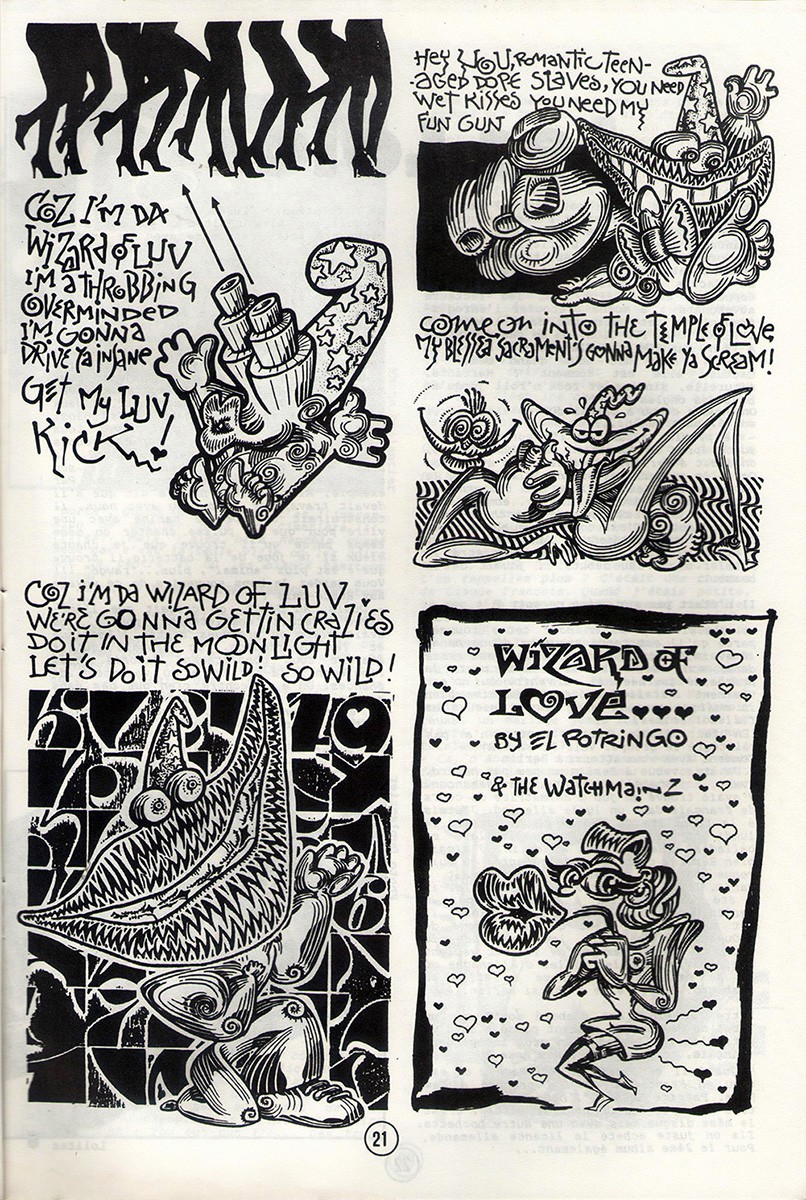 COZ I'M DA
WIZARD OF LUV
I'M A THROBBING
OVERMINDED
I'M GONNA
DRIVE YA INSANE
GET MY LUV
KICK...!
HEY YOU, ROMANTIC TEEN-
-AGED DOPE SLAVES, YOU NEED
WET KISSES YOU NEED MY
FUN GUN
COME ON INTO THE TEMPLE OF LOVE
MY BLESSED SACRAMENT'S GONNA MAKE YA SCREAM!
COZ I'M DA WIZARD OF LUV
WE'RE GONNA GETTIN CRAZIES
DO IT IN THE MOONLIGHT
LET'S DO IT SO WILD! SO WILD!
WIZARD OF
LOVE...
BY EL POTRINGO
& THE WATCHMAINZ
21